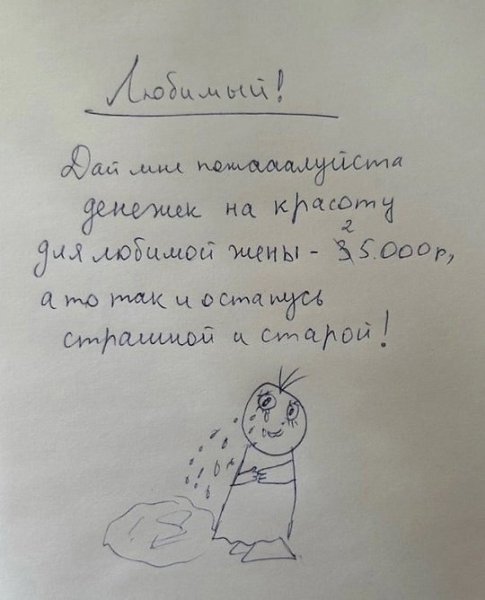 Любимый!
Дай мне пожааалуйста
денежек на красоту
для любимой жены - 25.000р,
а то так и останусь
страшной и старой!